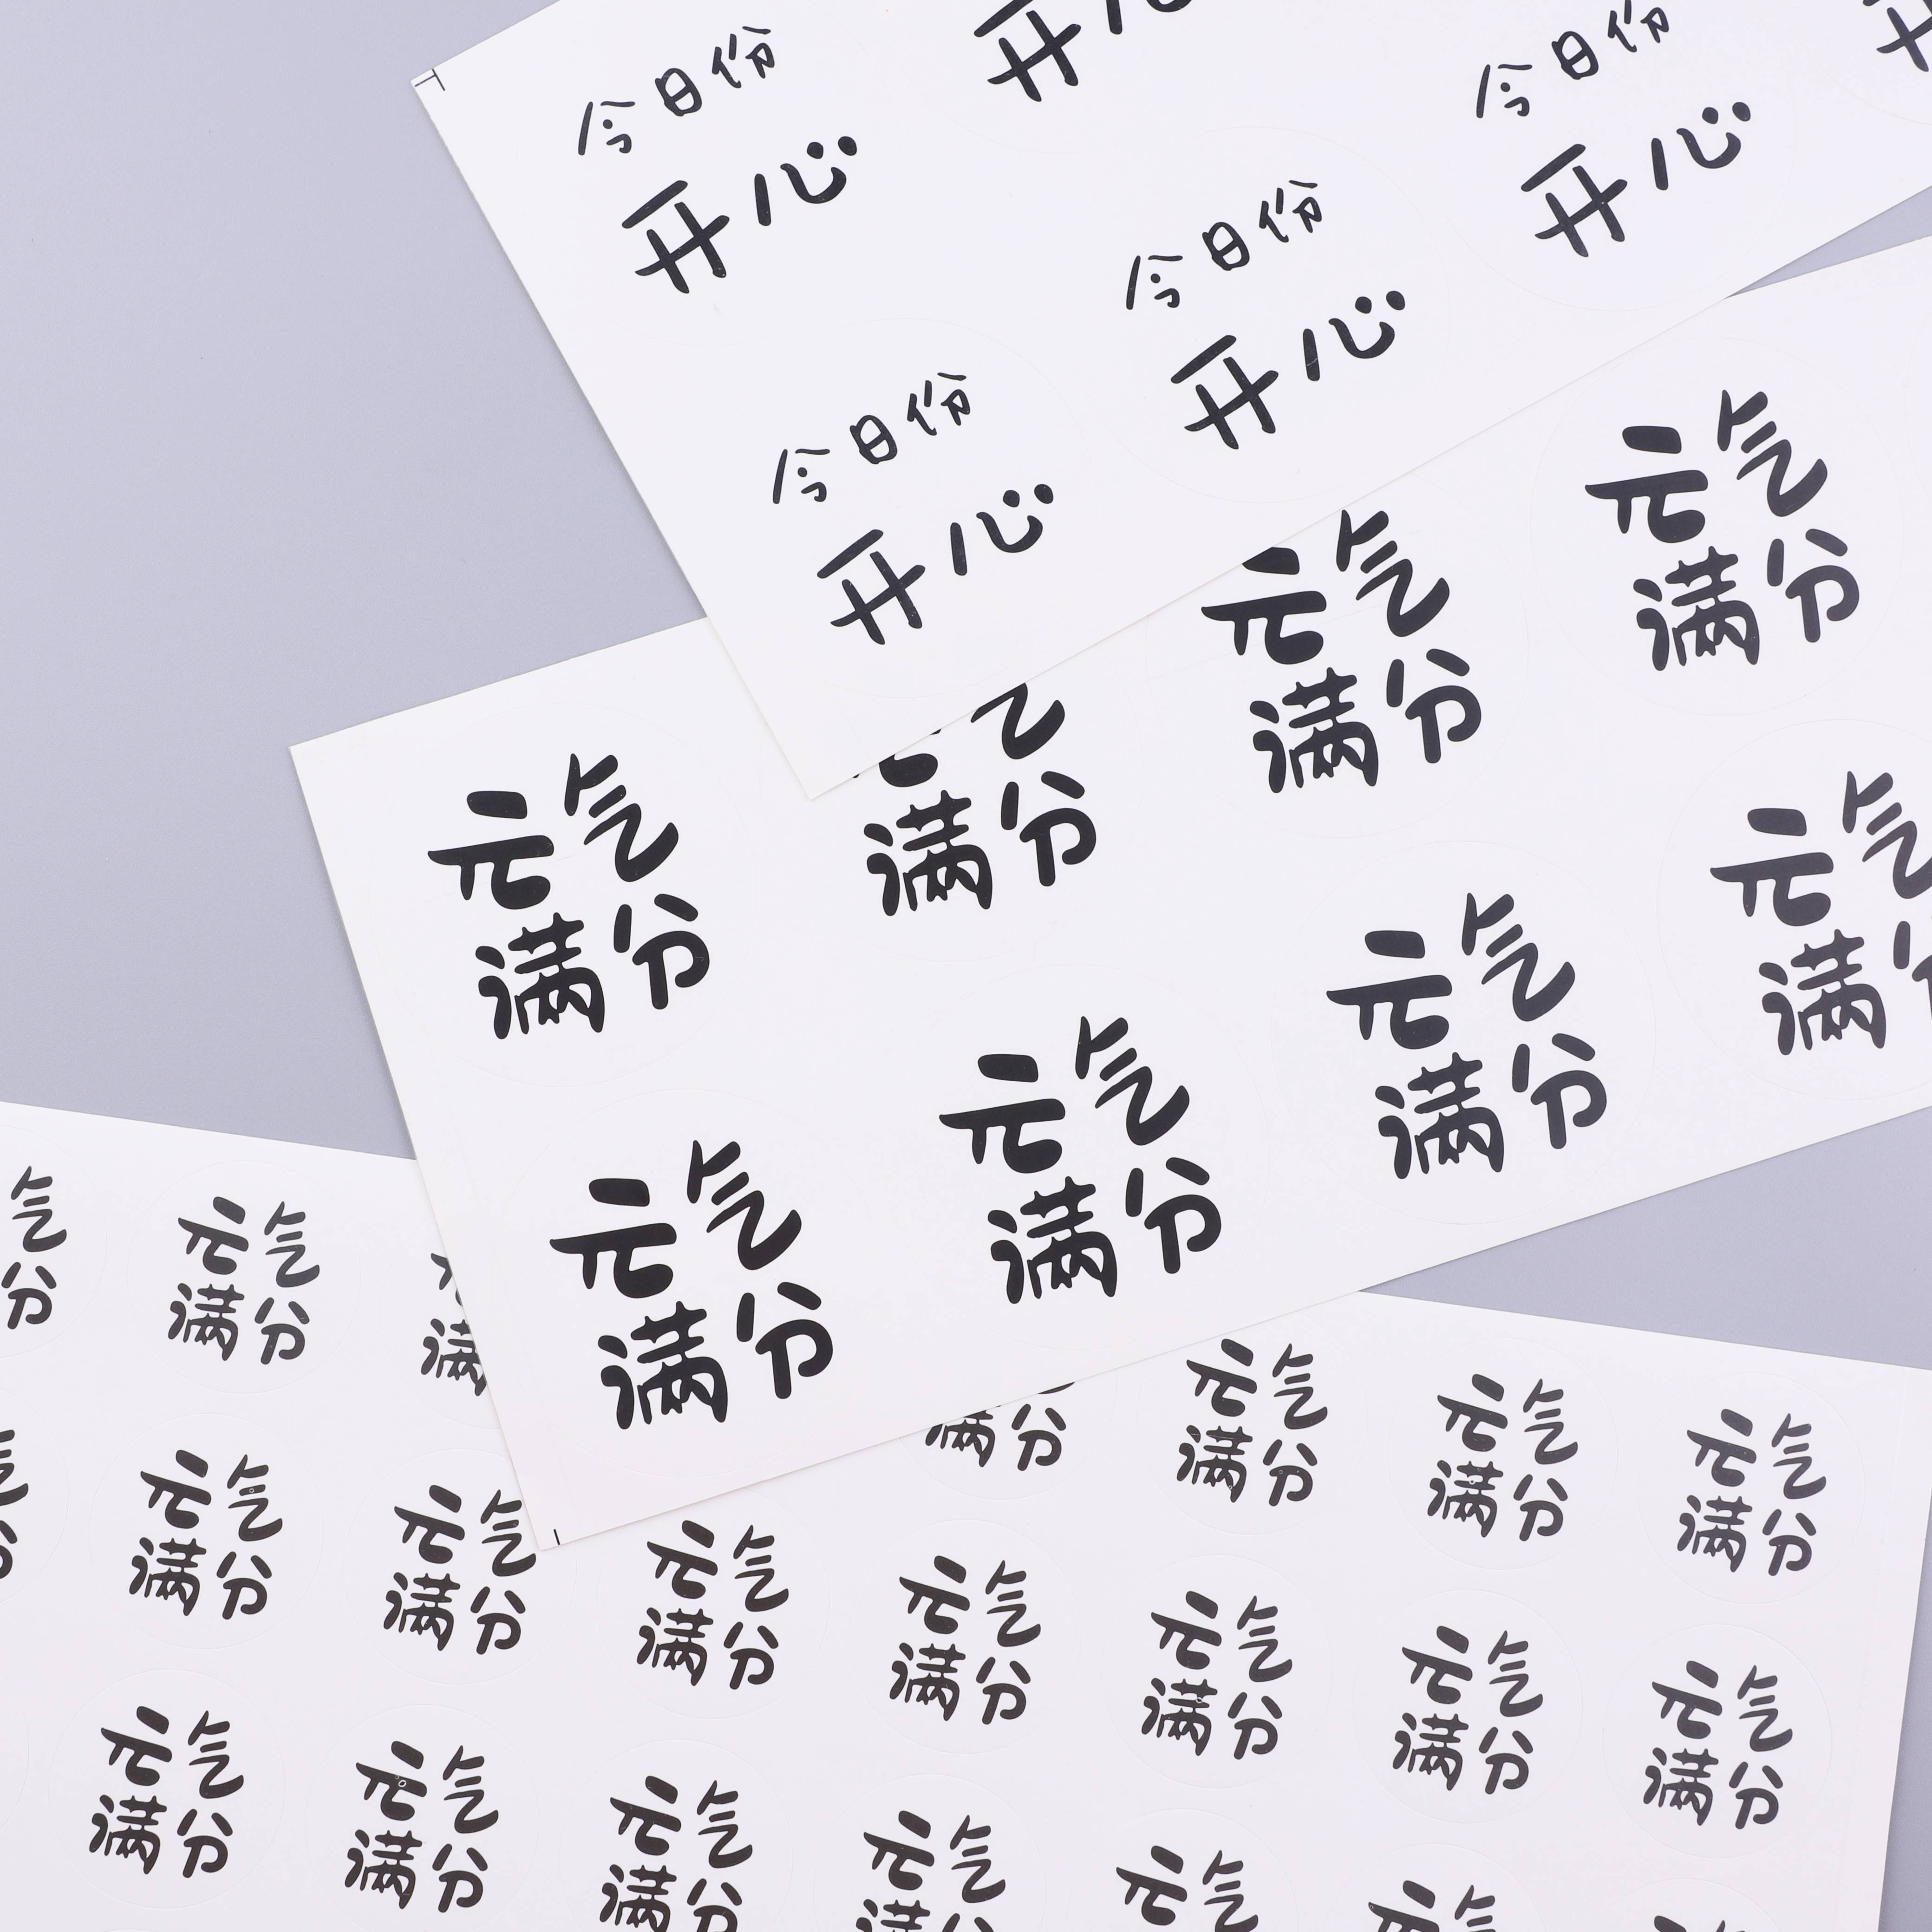 今日份
开心
开
今日份
开心
今日份
开心
今日份
开心
元气
满分
元气
满分
满分
元气
满分
元气
满
元气
满分
元气
满分
元气
满分
气
分
元气
满分
满
满分
元气
满分
元气
满分
元气
满分
元气
满分
元气
满分
元气
满分
元气
满分
元气
满分
元气
满分
元气
满分
元气
满分
元气
满分
元气
满分
元气
元气